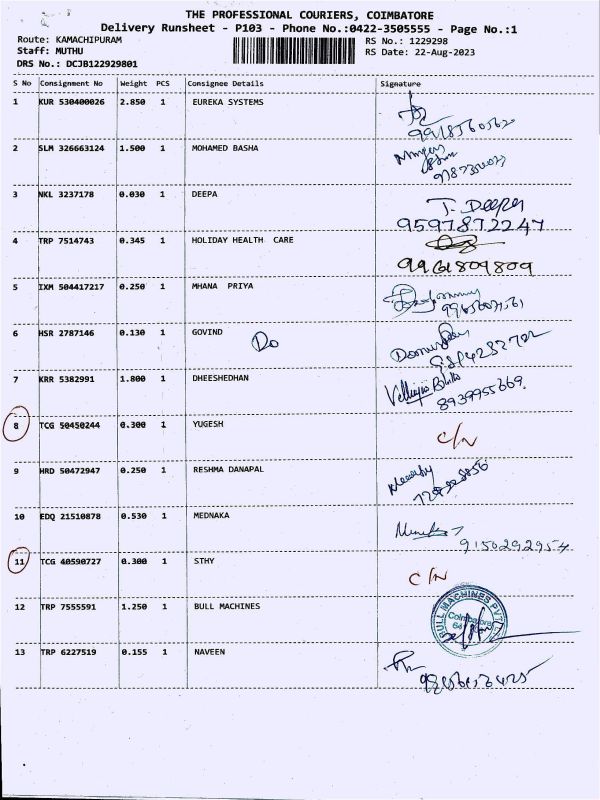 THE PROFESSIONAL COURIERS, COIMBATORE
Delivery Runsheet - P103 - Phone No.:0422-3505555 - Page No.:1
Route: KAMACHIPURAM RS No.: 1229298
Staff: MUTHU RS Date: 22-Aug-2023
DRS No.: DCJB122929801
S No Consignment No Weight PCS Consignee Details Signature
1 KUR 530400026 2.850 1 EUREKA SYSTEMS
2 SLM 326663124 1.500 1 MOHAMED BASHA
3 NKL 3237178 0.030 1 DEEPA T. Deepa
9597872247
4 TRP 7514743 0.345 1 HOLIDAY HEALTH CARE
9961809809
5 IXM 504417217 0.250 1 MHANA PRIYA
6 HSR 2787146 0.130 1 GOVIND Do
7 KRR 5382991 1.800 1 DHEESHEDHAN
8939955669.
8 TCG 50450244 0.300 1 YUGESH C/N
9 HRD 50472947 0.250 1 RESHMA DANAPAL
10 EDQ 21510878 0.530 1 MEDNAKA
9150292954
11 TCG 40590727 0.300 1 STHY C/N
12 TRP 7555591 1.250 1 BULL MACHINES BULL MACHINES PVT
Coimbatore
13 TRP 6227519 0.155 1 NAVEEN